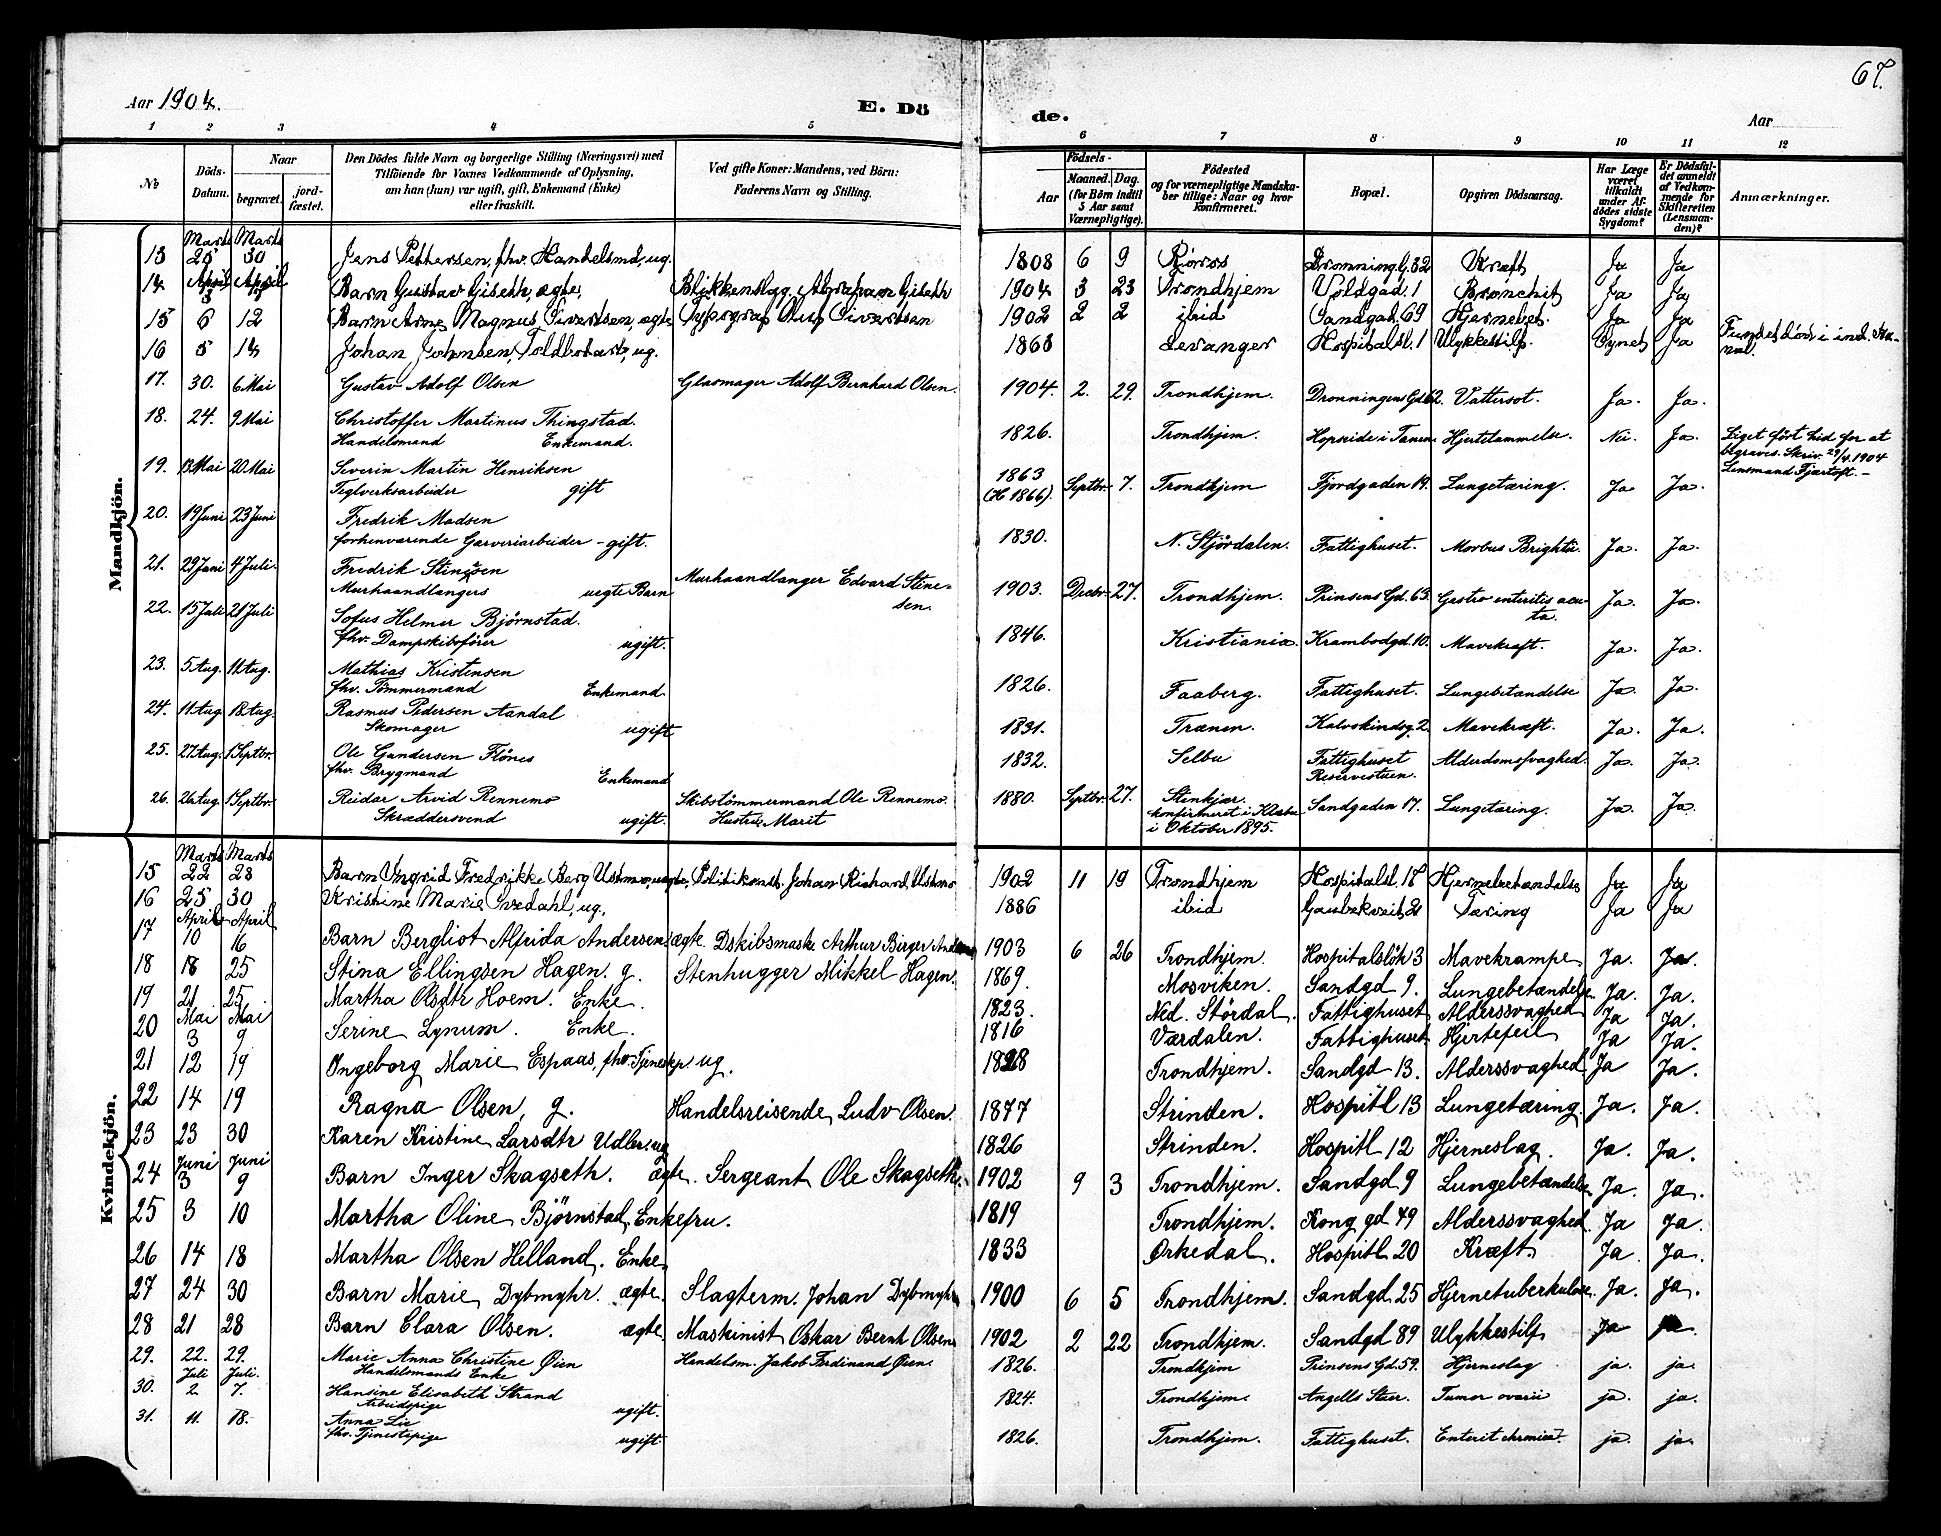 Aar 1904.
E. Dö
de.
Aar
67.
1 2 3 4 5 6 7 8 9 10 11 12
№
Döds-Datum.
Naar
begravet.
jord-fæstet.
Den Dödes fulde Navn og borgerlige Stilling (Næringsvei) med
Tilföiende for Voxnes Vedkommende af Oplysning,
om han (hun) var ugift, gift, Enkemand (Enke)
eller fraskilt.
Ved gifte Koner: Mandens, ved Börn:
Faderens Navn og Stilling.
Födsels-
Aar
Maaned. Dag.
(for Börn indtil
5 Aar samt
Værnepligtige).
Födested
og for værnepligtige Mandska-
ber tillige: Naar og hvor
konfirmeret.
Bopæl.
Opgiven Dödsaarsag.
Har Læge
været
tilkaldt
under Af-
dödes sidste
Sygdom?
Er Dödsfal-
det anmeldt
af Vedkom-
mende for
Skifteretten
(Lensman-
den)?
Anmærkninger.
Mandkjön.
Marts Marts
13 25 30 Jens Pettersen, fhv. Handelsmd, ug. 1808 6 9 Röros Dronning. G. 32 Kræft Ja Ja
April April
14 3 Barn Gustav Giseth, ægte, Blikkenslag. Abraham Giseth 1904 3 23 Trondhjem Voldgad. 1 Bronchit Ja Ja
15 6 12 Barn Arne Magnus Sivertsen, ægte Typograf Oluf Sivertsen 1902 2 2 ibid Sandgad. 69 Ja Ja
16 5 14 Johan Johnsen, ug. 1863 Levanger Hospitalsl. 1 Ulykkestilf. Synet Ja Fundet död i ind. Ka-
nal.
17. 30. 6 Mai Gustav Adolf Olsen Glasmager Adolf Bernhard Olsen. 1904. 2. 29. Trondhjem. Dronningens Gd. 62. Vattersot. Ja. Ja.
18. 24. 9 Mai Christoffer Martinus Thingstad.
Handelsmand Enkemand. 1826. Trondhjem. Hopseide i Tanen. Hjertelammelse. Nei. Ja. Liget fört hid for at
begraves. Skriv. 29/4.1904
Lensmand Fjærtoft. -
19. 13. Mai 20. Mai Severin Martin Henriksen
Teglverksarbeider gift 1863
(H 1866). Septbr. 7. Trondhjem Fjordgaden 19. Lungetæring. Ja Ja.
20. 19 Juni 23 Juni Fredrik Madsen
forhenværende Garveriarbeider - gift. 1830. N. Stjördalen. Fattighuset. Morbus Brightii. Ja. Ja.
21. 29 Juni 4 Juli. Fredrik Stinesen
Murhaandlangers uegte Barn Murhaandlanger Edvard Stine-
sen. 1903. Decbr. 27. Trondhjem. Prinsens Gd. 63. Gastro enteritis acu-
ta. Ja. Ja.
22. 15 Juli 21 Juli Sofus Helmer Björnstad.
fhv. Dampskibsförer ugift. 1846. Kristiania. Krambodgd. 10. Mavekræft. Ja. Ja.
23. 5 Aug. 11 Aug. Mathias Kristensen
fhv. Tömmermand Enkemand. 1826. Faaberg. Fattighuset. Lungebetændelse Ja. Ja.
24. 11 Aug. 18 Aug. Rasmus Pedersen Aandal
Skomager ugift 1831. Trænen. Kalvskindsg. 2. Mavekræft. Ja. Ja.
25. 27 Aug. 1 Septbr. Ole Gundersen Flönes
fhv. Brygmand Enkemand 1832. Selbu Fattighuset
Reservestuen. Alderdomssvaghed. Ja. Ja.
26. 26 Aug. 1 Septbr. Reidar Arvid Rennemo
Skræddersvend ugift. Skibstömmermand Ole Rennemo.
Hustru: Marit 1880. Septbr. 27. Stenkjær.
konfirmeret i Klæbu
i Oktober 1895. Sandgaden 17. Lungetæring. Ja. Ja.
Kvindekjön.
Marts Marts
15 22 28 Barn Ingrid Fredrikke Berg Ustmo, uegte, Politikonst. Johan Richard Ustmo 1902 11 19 Trondhjem Hospitalsl. 18 Hjernebetændelse Ja Ja
16 25 30 Kristine Marie Svedahl, ug. 1886 ibid Gaubekveit 2 Tæring Ja Ja
April April
17 10 16 Barn Bergliot Alfrida Andersen. ægte. Dskibsmask. Arthur Birger Andersen 1903 6 26 Trondhjem. Hospitalslök 3 Mavekrampe Ja. Ja.
18 18 25 Stina Ellingsen Hagen. g. Stenhugger Mikkel Hagen. 1869. Mosviken. Sandgd 9. Lungebetændelse Ja. Ja.
19 21 25 Martha Olsdtr Hoem. Enke. 1823. Ned. Stördal. Fattighuset Alderssvaghed Ja Ja.
Mai Mai
20 3 9 Serine Lynum. Enke. 1816 Værdalen. Fattighuset Hjertefeil Ja Ja.
21 12 19 Ongeborg Marie Espaas, fhv. Tjenestp. ug. 1828 Trondhjem. Sandgd 13. Alderssvaghed Ja Ja.
22 14 19 Ragna Olsen, g. Handelsreisende Ludv Olsen. 1877 Strinden. Hospitl 13 Lungetæring Ja. Ja.
23 23 30 Karen Kristine Larsdtr Udler. ug 1826 Strinden. Hospitl 12 Hjerneslag. Ja. Ja.
Juni Juni
24 3 9 Barn Inger Skagseth. ægte. Sergeant Ole Skagseth. 1902 9 3 Trondhjem. Sandgd 9 Lungebetændelse Ja. Ja.
25 3 10 Martha Oline Björnstad, Enkefru. 1819 Trondhjem. Kong gd 49 Alderssvaghed Ja Ja.
26 14 18 Martha Olsen Helland. Enke 1833 Orkedal. Hospitl 20 Kræft Ja Ja.
27 24 30 Barn Marie Dybmyhr. ægte. Slagterm. Johan Dybmyhr 1900 6 5 Trondhjem. Sandgd 25 Hjernetuberkulose Ja. Ja.
28 21 28 Barn Clara Olsen. ægte Maskinist Oskar Bernt Olsen 1902 2 22 Trondhjem. Sandgd 89 Ulykkestilf Ja Ja.
29. 22. 29. Marie Anna Christine Öien
Handelsmands Enke Handelsm. Jakob Ferdinand Öien. 1826. Trondhjem Prinsens Gd. 59. Hjerneslag ja. ja.
Juli Juli.
30. 2 7. Hansine Elisabeth Strand
Arbeidspige ugift. 1824. Trondhjem. Angells Stuer. Tumor ovarii ja. ja.
31. 11. 18.- Anna Lie
fhv. Tjenestepige ugift. 1826. Trondhjem. Fattighuset. Enterit chronica. ja. ja.